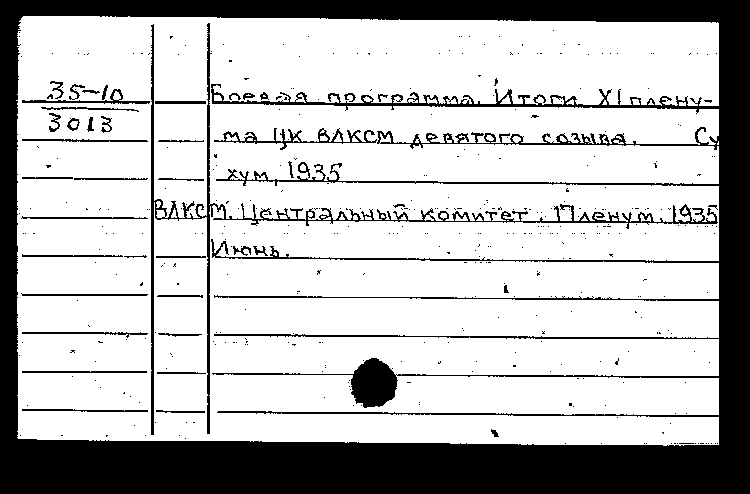 35-10
3013
Боевая программа. Итоги XI плену-
ма ЦК ВЛКСМ девятого созыва. Су
хум, 1935
ВЛКСМ. Центральный комитет. Пленум. 1935
Июнь.